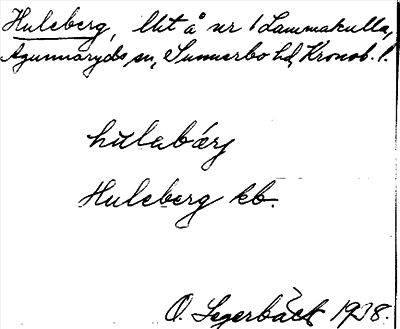 Huleberg, lht å nr 1 Lammakulla,
Agunnaryds sn, Sunnerbo hd, Kronob. l.
hùlabærj
Huleberg kb.
O. Segerbäck 1938.